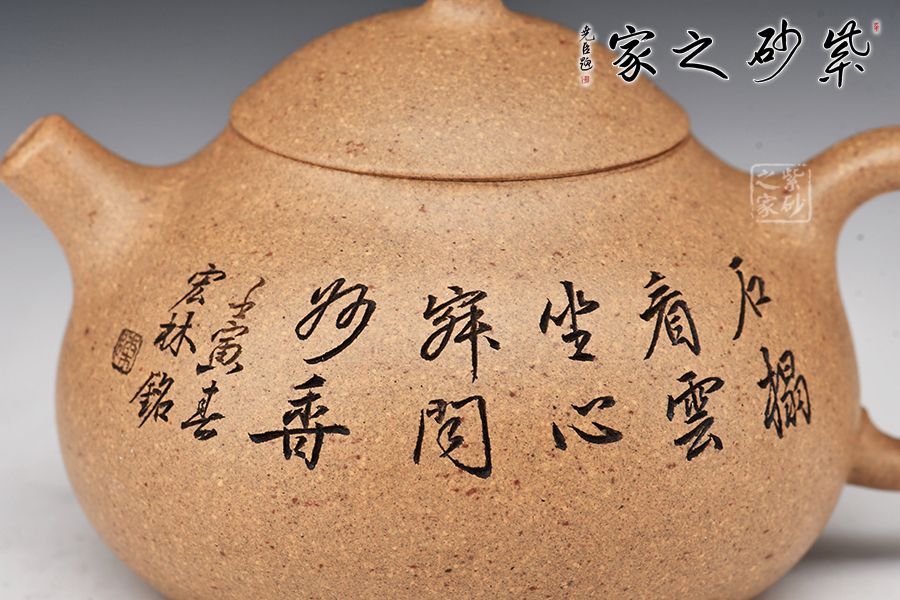 紫砂之家
堯臣題
紫砂
之家
石榻
看雲
坐心
寂聞
妙香
壬寅春
宏林銘